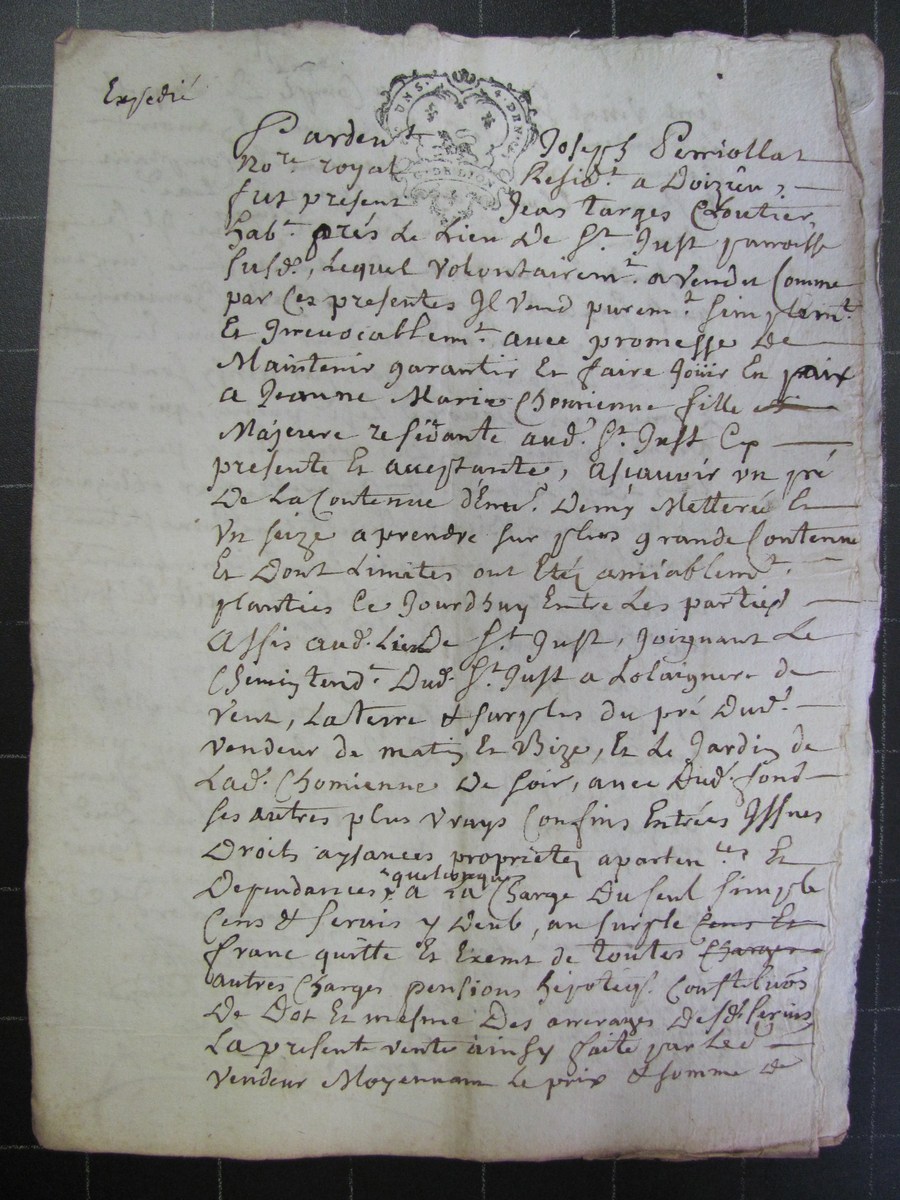 Expedié
UNS. 4. DEN.
G. DE LION
Pardevt Joseph Perriollat
Nore royal Residt a Doizieu,
fut présent Jean targes Cloutier,
habt prés le Lieu de St Just parroisse
susde, Lequel Volontairemt a vendu Comme
par Ces presentes Il vend puremt simplemt
Et Irrevocablemt avec promesse de
Maintenir garantir Et faire Joüir En paix
a Jeanne Marie Chomienne fille
Majeure residante aud. St Just Cy
presente Et acceptante, ascavoir un pré
De La Contenue d'Envn Demy Metterée Et
Un seize a prendre sur plus grande Contenue
Et Dont Limites ont Eté amiablemt
plantées Ce Jourdhuy Entre Les parties
Assis aud. Lieu de St Just, Joignant Le
Chemin tendt Dud. St Just a de
Vent, La terre & surplus du pré Dudt
vendeur de matin Et Bize, Et Le Jardin de
Lade Chomienne De soir, avec Dud. fond
ses autres plus vrays Confins Entrées Issues
Droits aysances proprietés apartences Et
Dependances quelconques a La Charge Du seul simple
Cens & servis y Deub, au surplus Cens Et
franc quitte Et Exemt de toutes Charges
autres Charges pensions hipoteqs. Constituōs
De Dot Et mesme Des arrerages Desds servis
La presente vente ainsy faite par Led
vendeur Moyennant Le prix & somme de